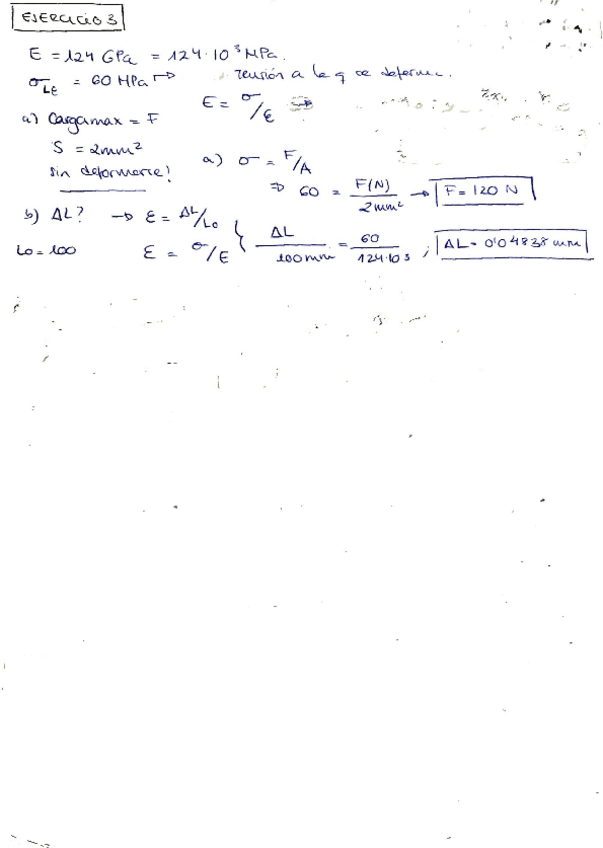 EJERCICIO 3
E = 124 GPa = 124·10³ MPa.
σLE = 60 MPa → tensión a la q se deforma.
E = σ/ε
a) Carga max = F
S = 2mm²
sin deformarse!
a) σ = F/A
⇒ 60 = F(N)/2mm² → F = 120 N
b) ΔL? → ε = ΔL/L0
L0 = 100
ε = σ/E { ΔL/100mm = 60/124·10³ ; ΔL = 0'04838 mm